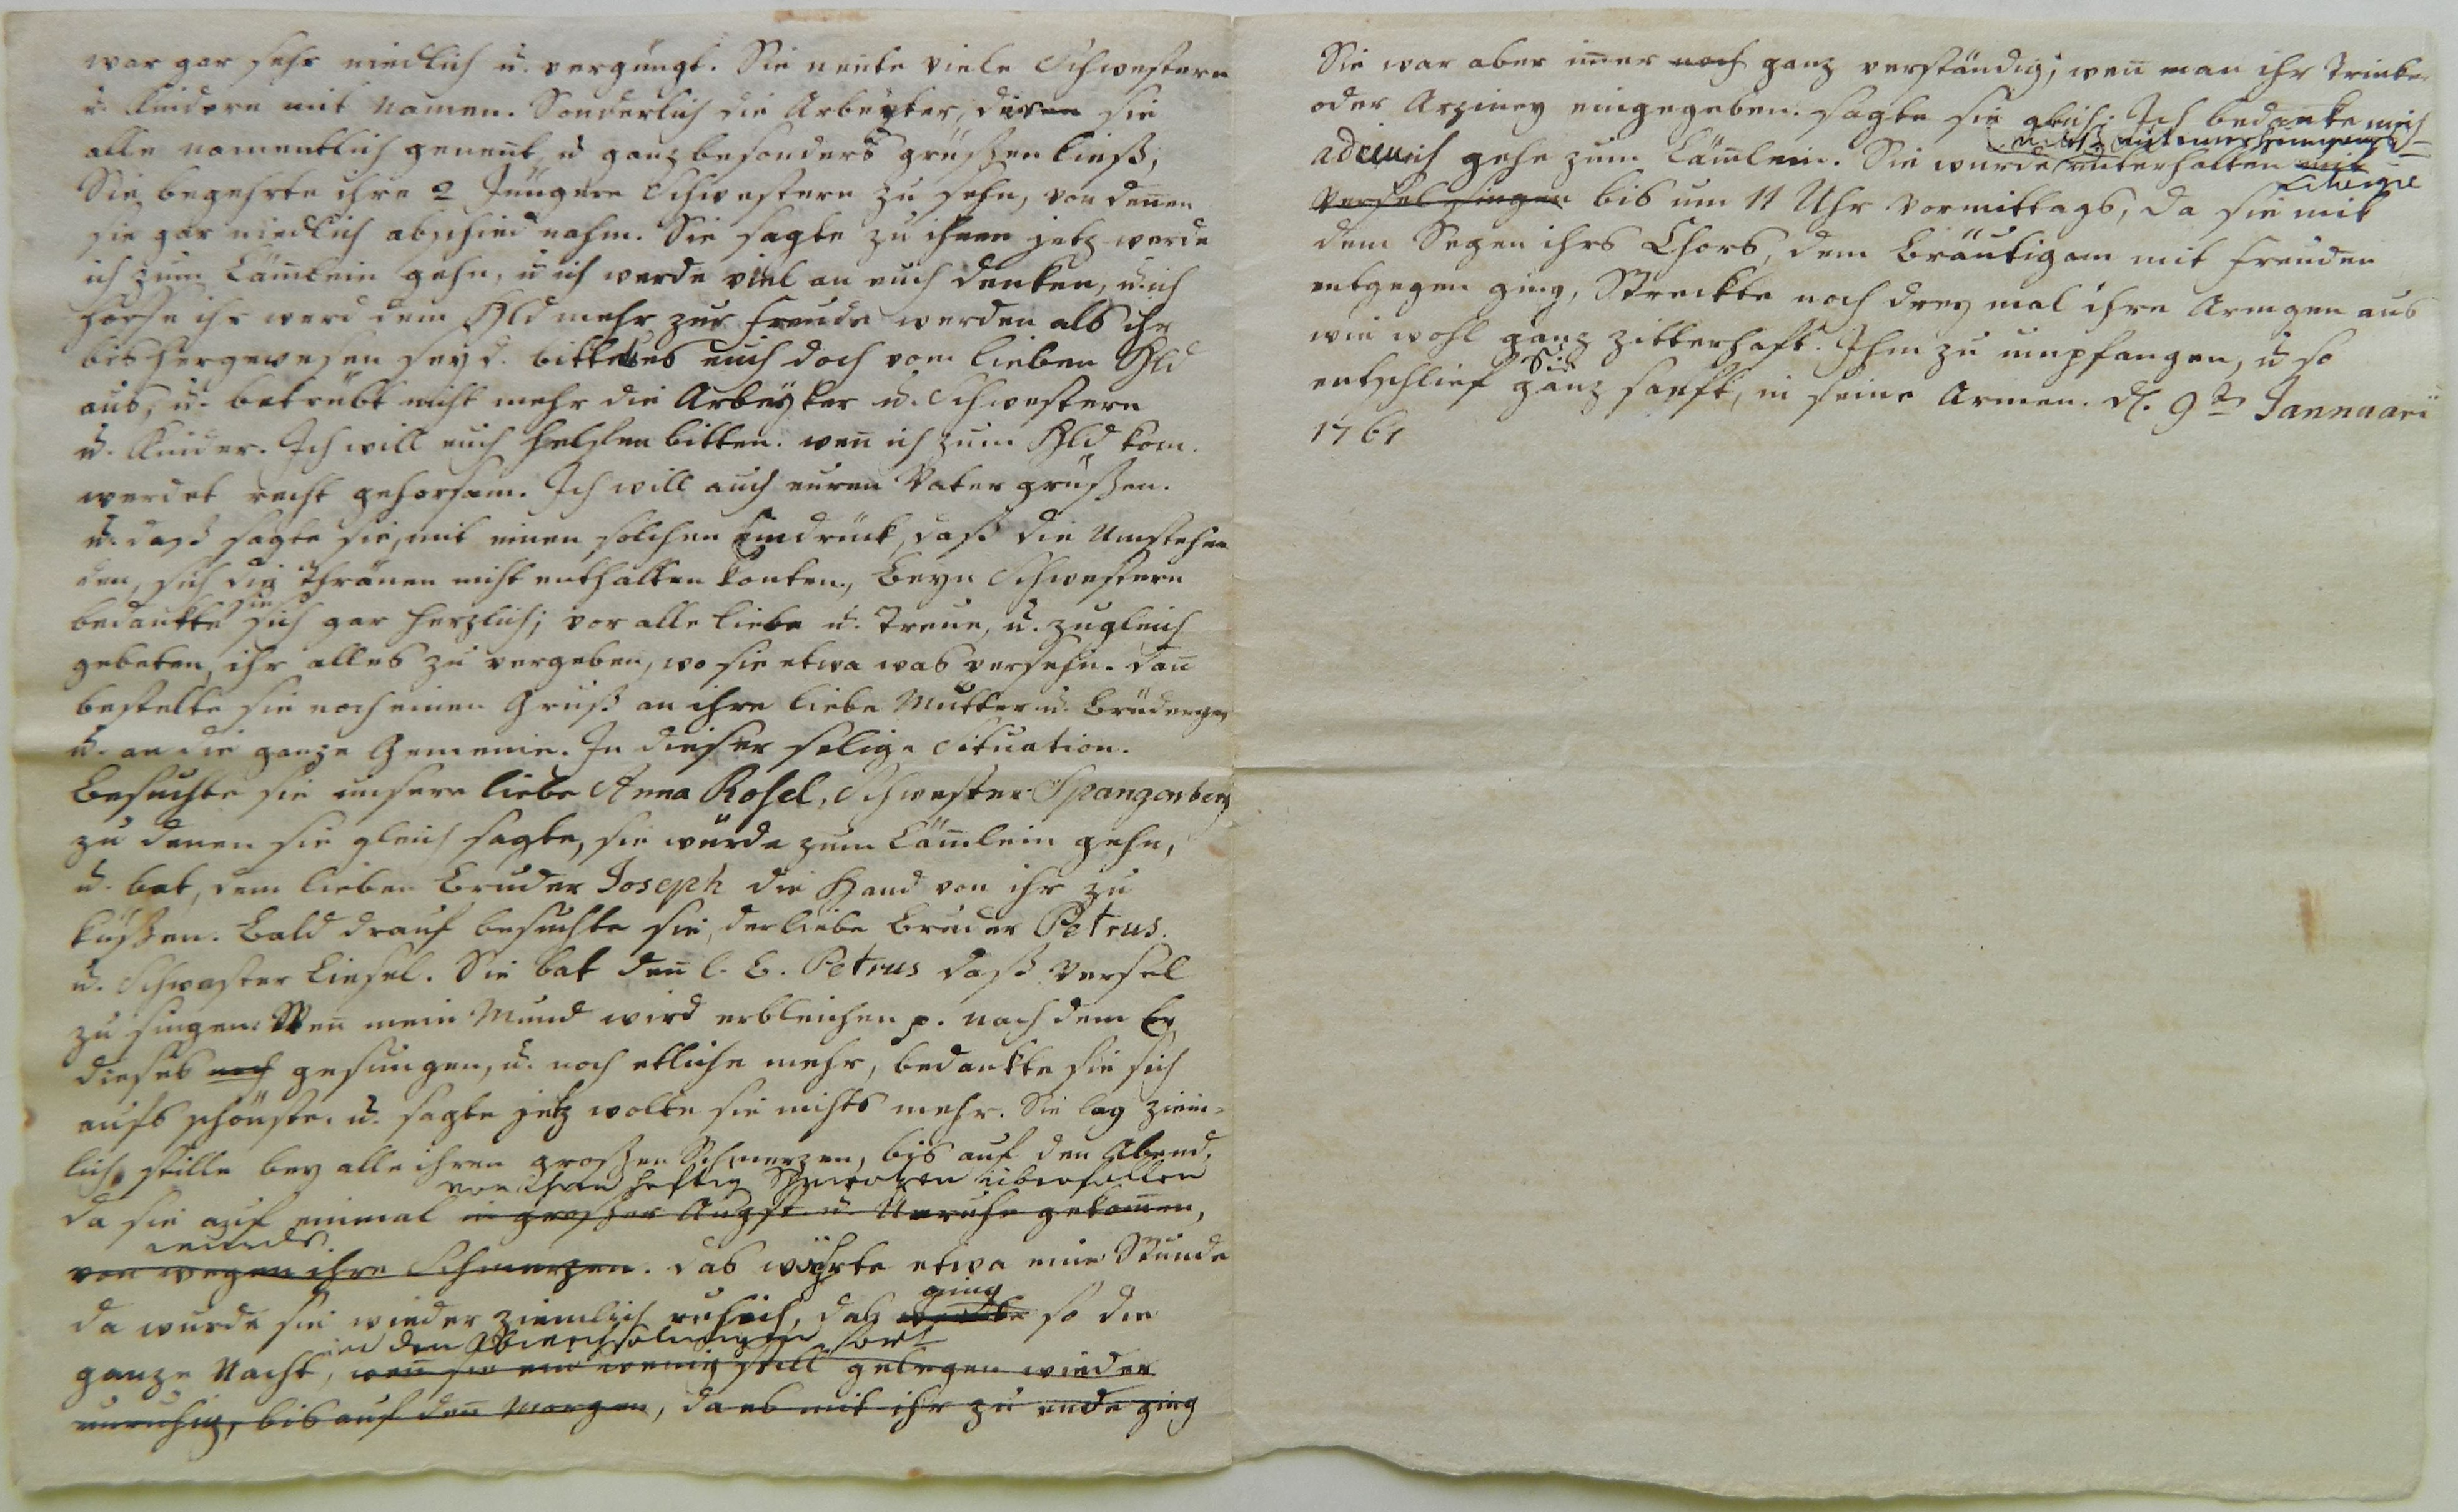 war gar sehr niedlich u. vergüngt. Sie nente viele Schwestern
u. Kindern mit Namen. Sonderlich die Arbeÿter, die sie
alle namentlich genent, u ganz besonders grüßen ließ,
Sie begehrte ihre 2 Jüngere Schwestern zu sehn, von denen
sie gar niedlich abschied nahm. Sie sagte zu ihnen jetz werde
ich zum Läm̄lein gehn, u ich werde viel an euch denken, u. ich
hoffe ihr werd dem Hld mehr zur freude werden als ihr
bishergewesen seyd. bittets euch doch vom lieben Hld
aus, u. betrübt nicht mehr die Arbeÿter u. Schwestern
u. Kinder. Ich will euch helffen bitten. wen̄ ich zum Hld kom.
werdet recht gehorsam. Ich will auch euren Vater grüßen.
u. daß sagte sie, mit einen solchen Eindrück, daß die Umstehen
den, sich die Thränen nicht enthalten konten., Beÿn Schwestern
bedankte sie sich gar herzlich; vor alle Liebe u. Treue, u. zugleich
gebeten, ihr alles zu vergeben, wo sie etwa was versehn. dan̄
bestelte sie noch einen Gruß an ihre liebe Mutter u. Brüdergen
u. an die ganze Gemeine. In dieser selige Situation.
Besuchte sie unsere liebe Anna Rosel, Schwester Spangenberg
zu denen sie gleich sagte, sie würde zum Läm̄lein gehn,
u. bat, dem lieben Bruder Joseph die Hand von ihr zu
küßen. Bald drauf besuchte sie, der liebe Bruder Petrus.
u. Schwester Liesel. Sie bat den̄ l. B. Petrus daß Versel
zu singen: Wen̄ mein Mund wird erbleichen p. nach dem Er
dieses noch gesungen, u. noch etliche mehr, bedankte sie sich
aufs schönste. u. sagte jetz wolte sie nichts mehr. Sie lag ziem-
lich stille bey alle ihren großen Schmerzen, bis auf den Abend,
von heftig Schmertzen überfallen
da sie auf einmal in großer Angst u. Unruhe gekom̄en,
wurde
von wegen ihre Schmerzen. das währte etwa eine Stunde
ging
da wurde sie wieder ziemlich ruhich, das so die
in den Abwechselungen fort
ganze Nacht, wen̄ sie ein wenig still gelegen wieder
unruhig, bis auf den̄ Morgen, da es mit ihr zu ende ging
Sie war aber im̄er noch ganz verständig; wen̄ man ihr Trinken
oder Arziney eingegeben. sagte sie gleich: Ich bedanke mich
adieu ich gehe zum Läm̄lein. Sie wurde unterhalten mit
Versel singen bis um 11 Uhr Vormittags, da sie mit
dem Segen ihrs Chors, dem Bräutigam mit Freuden
entgegen ging, Streckte noch drey mal ihre Armgen aus
wie wohl ganz zitterhaft. Ihm zu umpfangen, u so
Sie
entschlief ganz sanft, in seine Armen. d. 9t Jannuari
1761